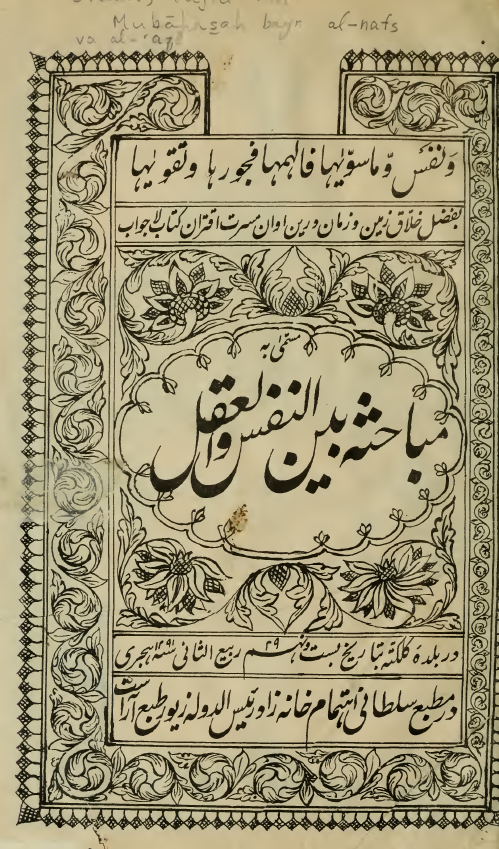 Mubāḥas̱ah bayn al-nafs
va al-ʻaql
ونفس وّما سوّيٰها فالهمها فجورہا وتقویٰها
بفضل خلّاق زمین و زمان درین اوان مسرت اقتران کتاب لاجواب
مسمّیٰ به
مباحثه بین النفس والعقل
در بلدهٔ کلکته بتاریخ بست ونهم ۲۹ ربیع الثانی ۱۲۹۱ سنه هجری
در مطبع سلطانی باهتمام خانه زاد رئیس الدوله زیور طبع آراست